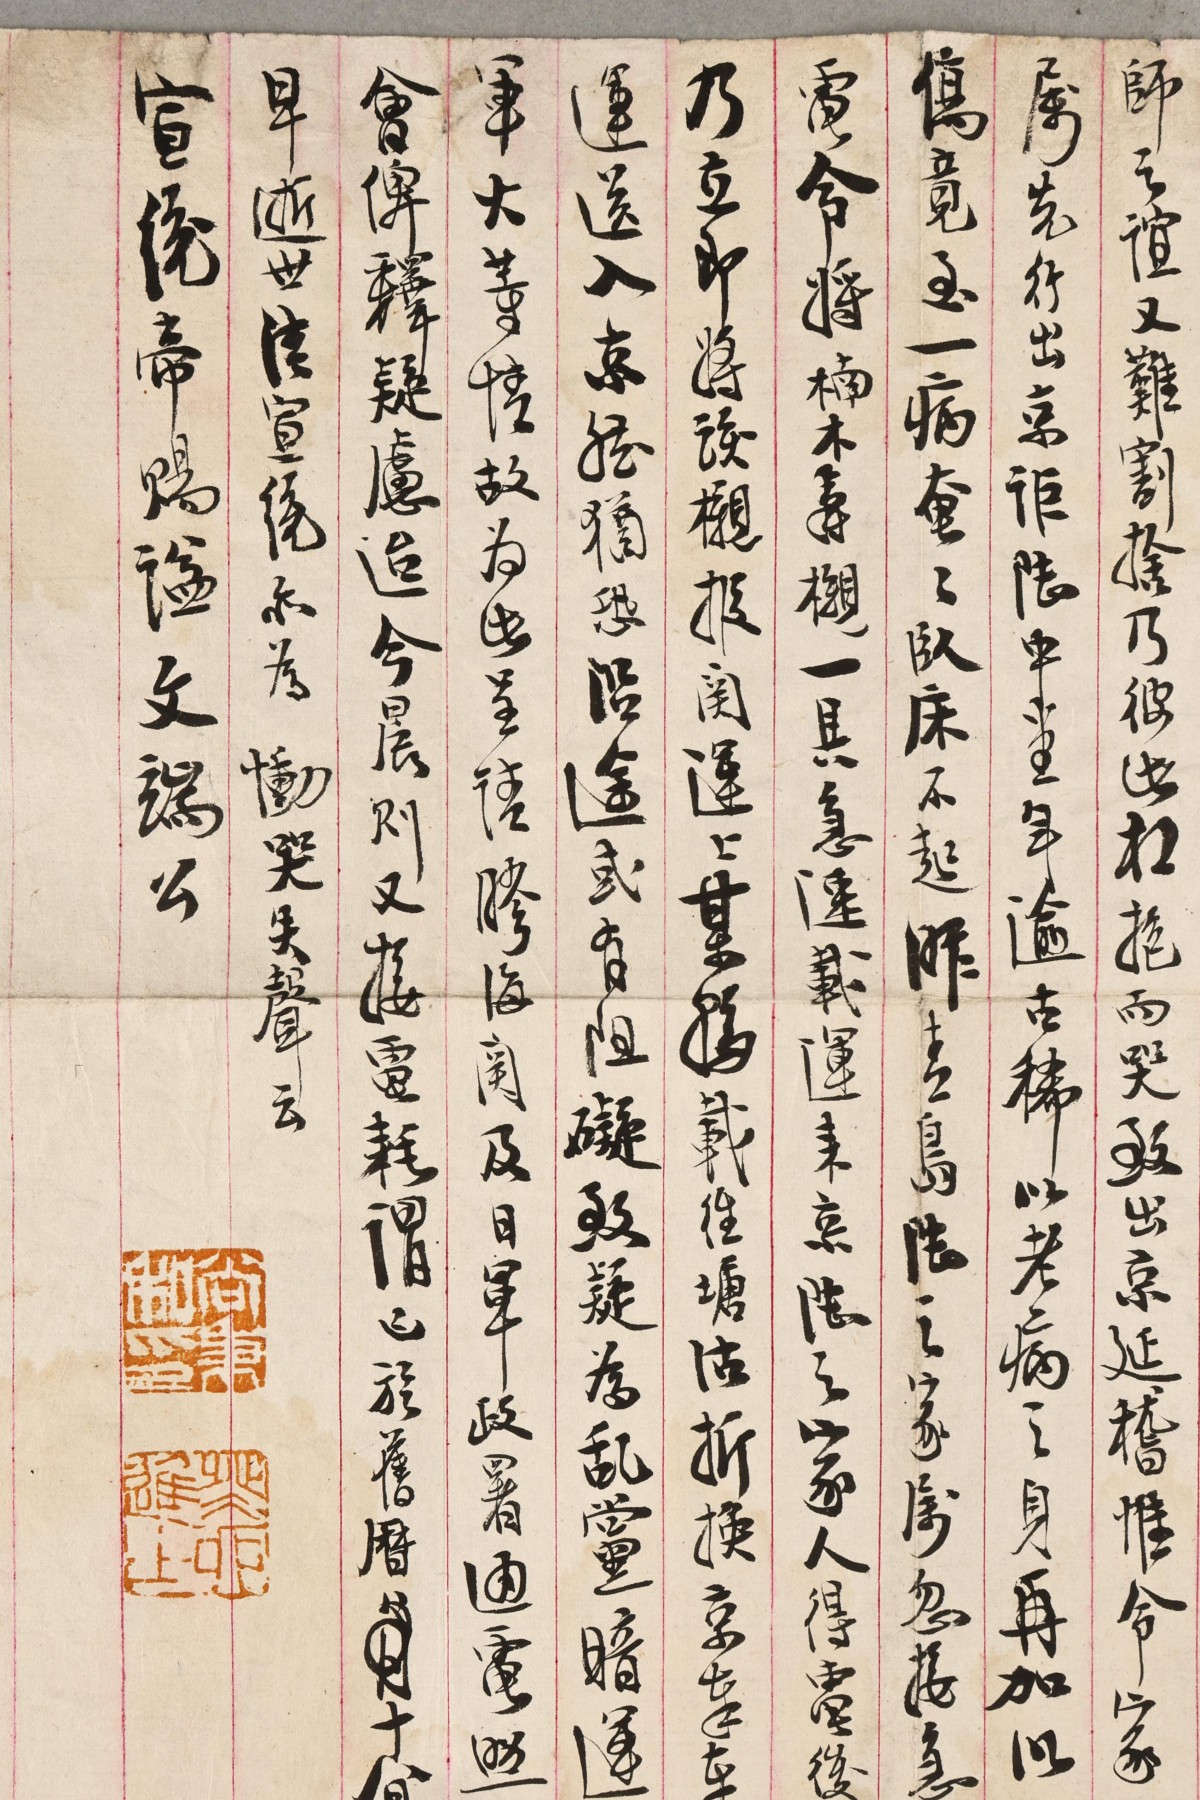 師之誼又難割捨乃彼此相抱而哭致出京延稽惟令家
屬先行出京詎陸中堂年逾古稀以老病之身再加以
傷竟至一病奄々臥床不起昨青島陸之家屬忽接急
電令將楠木壽櫬一具急速載運來京陸之家人得電後
乃立即將該櫬報關運上某輪載往塘沽折換京奉車
運送入京然猶恐沿途或有阻礙致疑為亂黨暗運
軍火等情故為此呈請膠海關及日軍政署通電照
會俾釋疑慮迨今晨則又接電耗謂已於舊曆月十
早逝世清宣統亦為 慟哭失聲云
宣統帝賜謚文端公